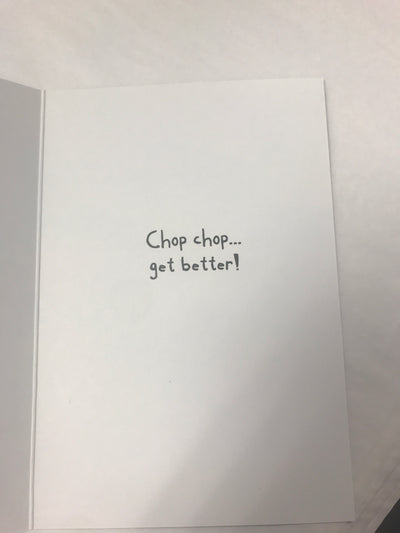 Chop chop...
get better!